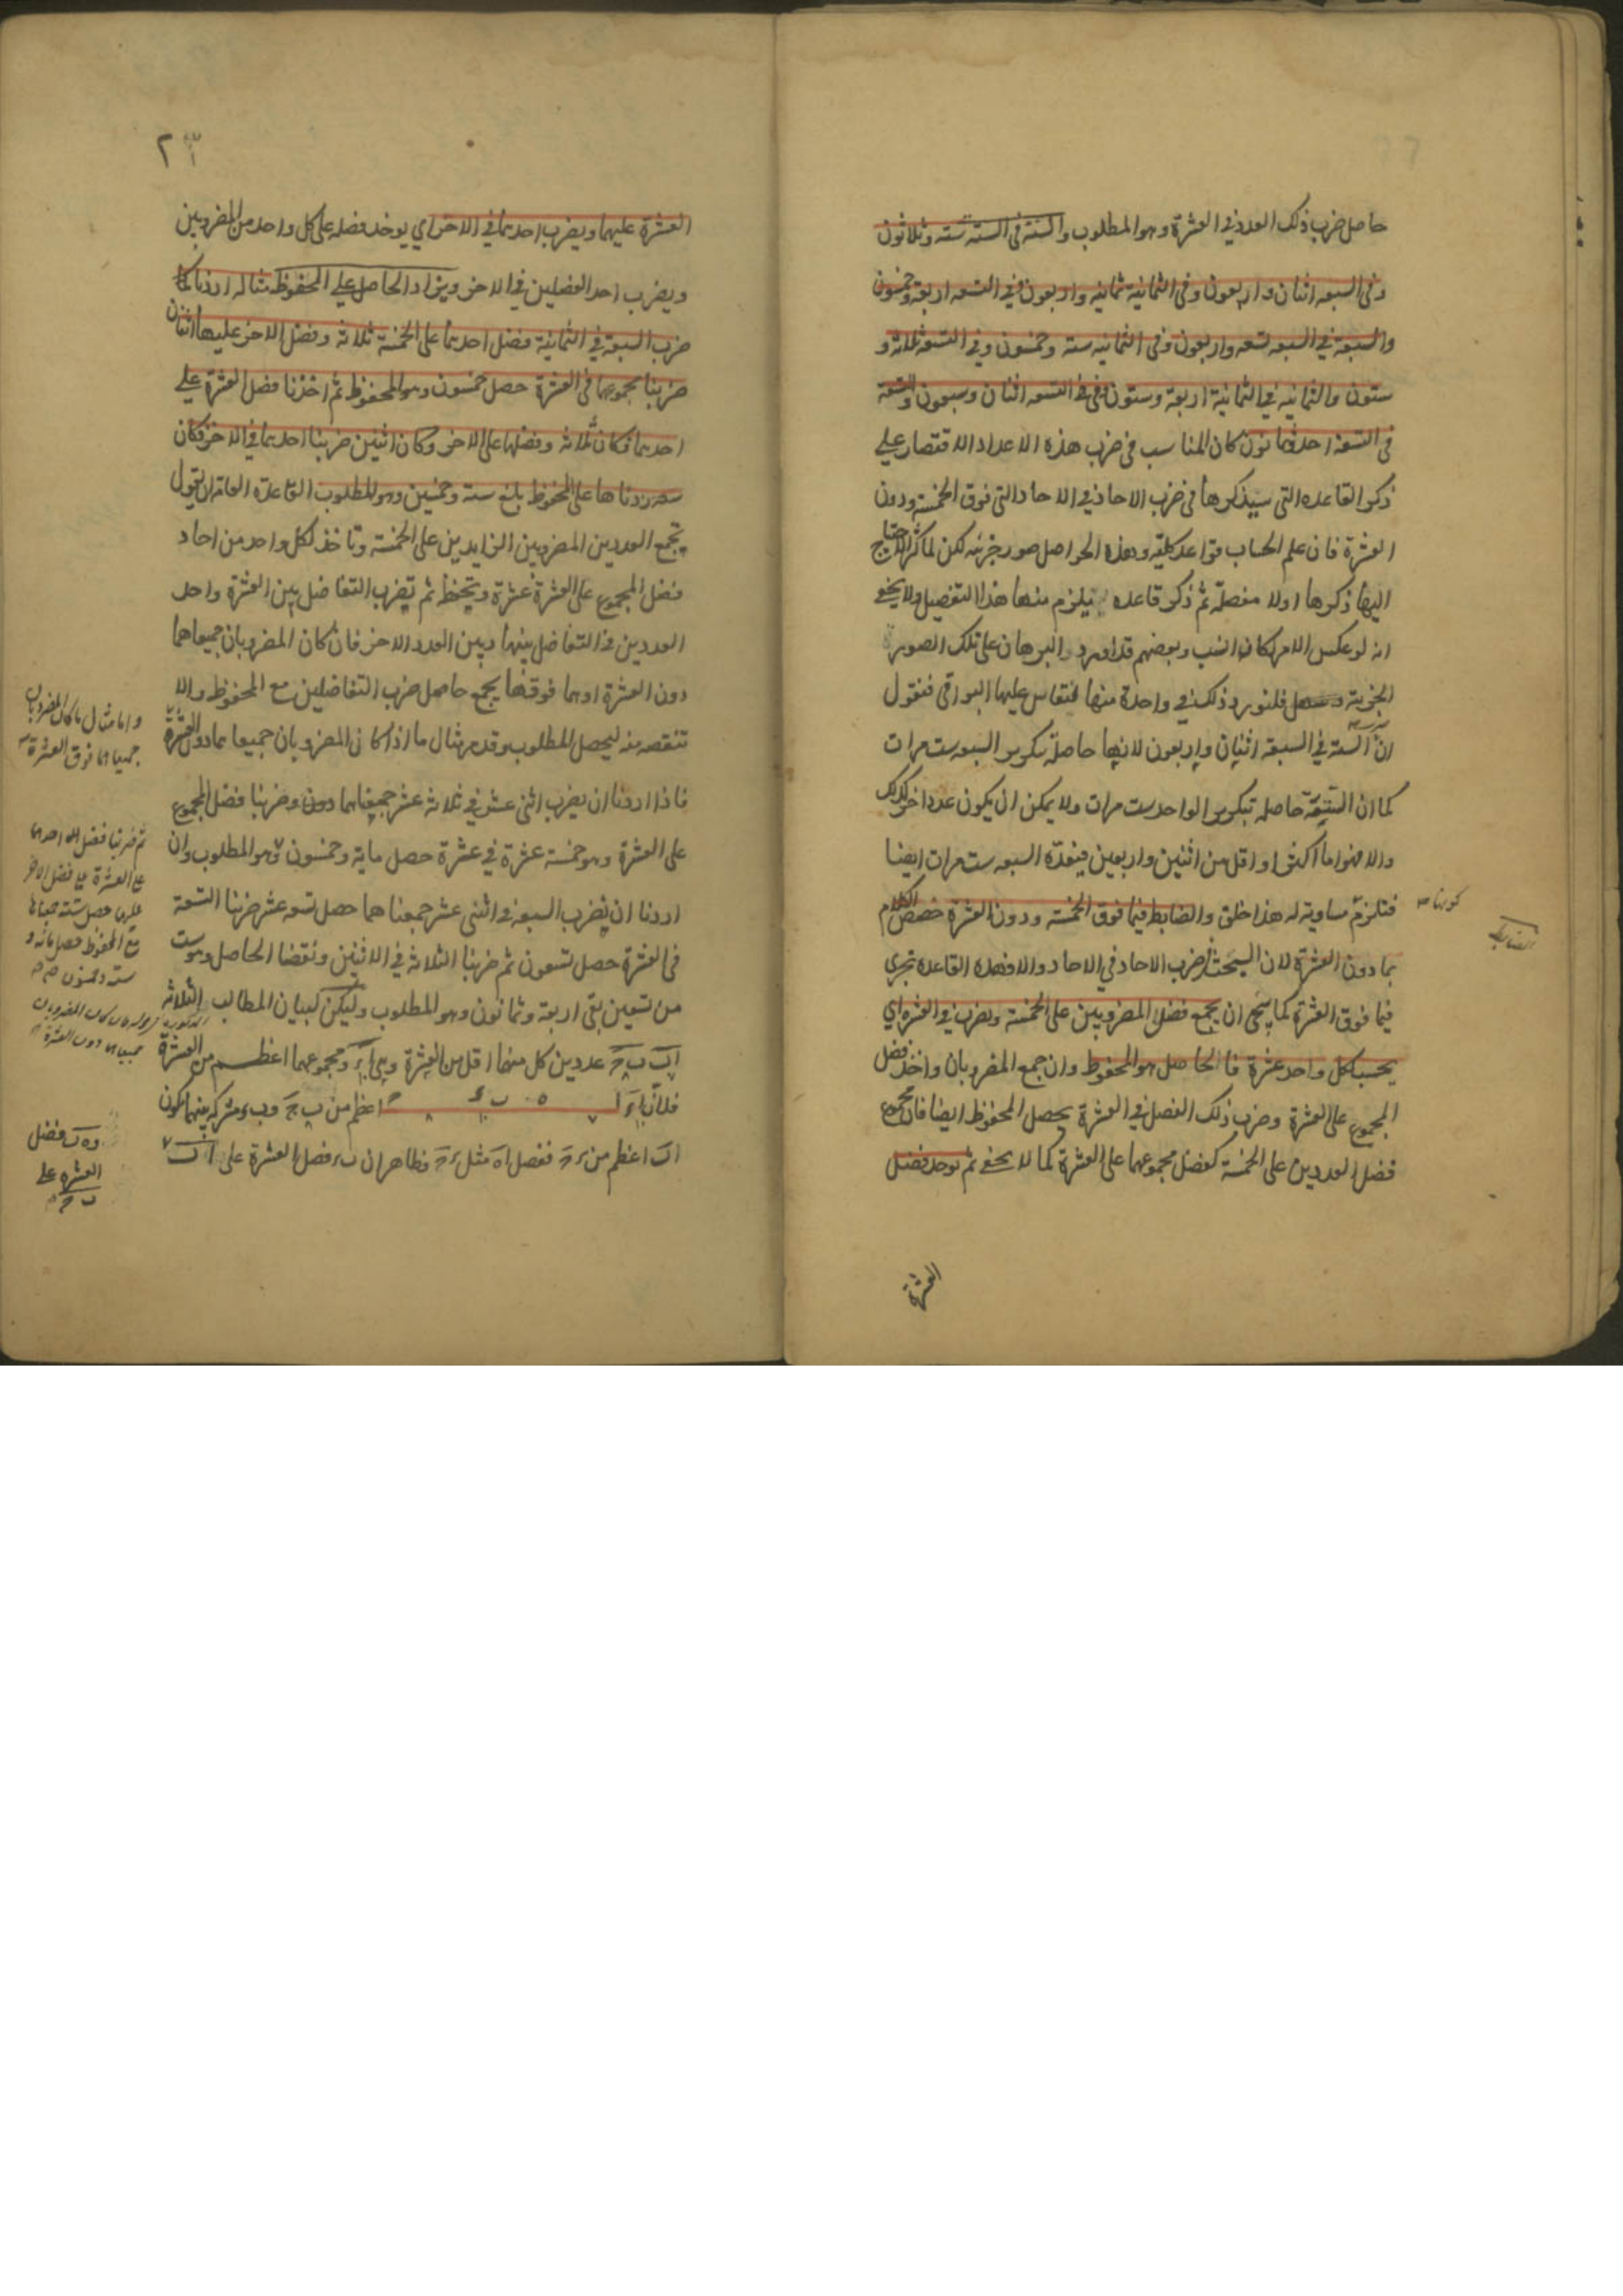 حاصل ضرب ذلك العدد في العشرة وهو المطلوب والستة في الستة ستة وثلاثون
وفي السبعة اثنان واربعون وفي الثمانية ثمانية واربعون وفي التسعة اربعة وخمسون
والسبعة في السبعة تسعة واربعون وفي الثمانية ستة وخمسون وفي التسعة ثلاثة و
ستون والثمانية في الثمانية اربعة وستون وفي التسعة اثنان وسبعون والتسعة
في التسعة احد وثمانون كان المناسب في ضرب هذه الاعداد الاقتصار على
ذكر القاعدة التي سيذكرها في ضرب الاحاد في الاحاد التي فوق الخمسة ودون
العشرة فان علم الحساب قواعد كلية وهذه الحواصل صور جزئية لكن لما كثر الاحتياج
اليها ذكرها اولا مفصلة ثم ذكر قاعدة يلزم منها هذا التفصيل ولا يخفى
انه لو عكس الامر لكان انسب وبعضهم قد اورد البرهان على تلك الصور
الجزئية فلنورد ذلك في واحدة منها فتقاس عليها البواقي فنقول
ان الستة في السبعة اثنان واربعون لانها حاصلة بتكرير السبعة ست مرات
كما ان الستة حاصلة بتكرير الواحد ست مرات ولا يمكن ان يكون عدد اخر كذلك
والا فهو اما اكثر او اقل من اثنين واربعين فيعده السبعة ست مرات ايضا
فتلزم مساويته له هذا خلف والضابط فيما فوق الخمسة ودون العشرة خصص الكلام
بما دون العشرة لان البحث في ضرب الاحاد في الاحاد والا فهذه القاعدة تجري
فيما فوق العشرة كما سيجئ ان يجمع فضل المضروبين على الخمسة ويضرب في العشرة اي
يحسب كل واحد عشرة فالحاصل هو المحفوظ وان جمع المضروبان واخذ فضل
المجموع على العشرة وضرب ذلك الفضل في العشرة يحصل المحفوظ ايضا فان مجموع
فضل العددين على الخمسة كفضل مجموعهما على العشرة كما لا يخفى ثم يوخذ فضل
العشرة
٢٣
العشرة عليهما ويضرب احدهما في الاخر اي يوخذ فضله على كل واحد من المضروبين
ويضرب احد الفضلين في الاخر ويزاد الحاصل على المحفوظ مثاله اردنا
ضرب السبعة في الثمانية فضل احدهما على الخمسة ثلاثة وفضل الاخر عليها اثنان
ضربنا مجموعهما في العشرة حصل خمسون وهو المحفوظ ثم اخذنا فضل العشرة على
احدهما فكان ثلاثة وفضلها على الاخر وكان اثنين ضربنا احدهما في الاخر فكان
ستة زدناها على المحفوظ بلغ ستة وخمسين وهو المطلوب القاعدة العامة ان تقول
تجمع العددين المضروبين الزايدين على الخمسة وتاخذ لكل واحد من احاد
فضل المجموع على العشرة عشرة وتحفظ ثم تضرب التفاضل بين العشرة واحد
العددين في التفاضل بينها وبين العدد الاخر فان كان المضروبان جميعا هما
دون العشرة اوهما فوقها يجمع حاصل ضرب التفاضلين مع المحفوظ والا
تنقصه منه ليحصل المطلوب وقد مر مثال ما اذا كان المضروبان جميعا مما دون العشرة
فاذا اردنا ان يضرب اثنى عشر في ثلاثة عشر جمعناهما وضربنا فضل المجموع
على العشرة وهو خمسة عشرة في عشرة حصل ماية وخمسون وهو المطلوب وان
اردنا ان يضرب السبعة في اثنى عشر جمعناهما حصل تسعة عشر ضربنا التسعة
في العشرة حصل تسعون ثم ضربنا الثلاثة في الاثنين ونقصنا الحاصل وهو ست
من تسعين بقى اربعة وثمانون وهو المطلوب وليكن لبيان المطالب الثلاثة
اب ب ج عددين كل منهما اقل من العشرة ومجموعهما اعظم من العشرة
اعظم من ب ج
اب اعظم من فظاهر ان فضل العشرة على اب
واما مثال ما كان المضروبان
جميعا مما فوق العشرة
ثم ضربنا فضل احدهما
على العشرة في فضل الاخر
عليها حصل ستة جمعناها
مع المحفوظ حصل مائة و
ستة وخمسون
فضل
العشرة على
ب ج